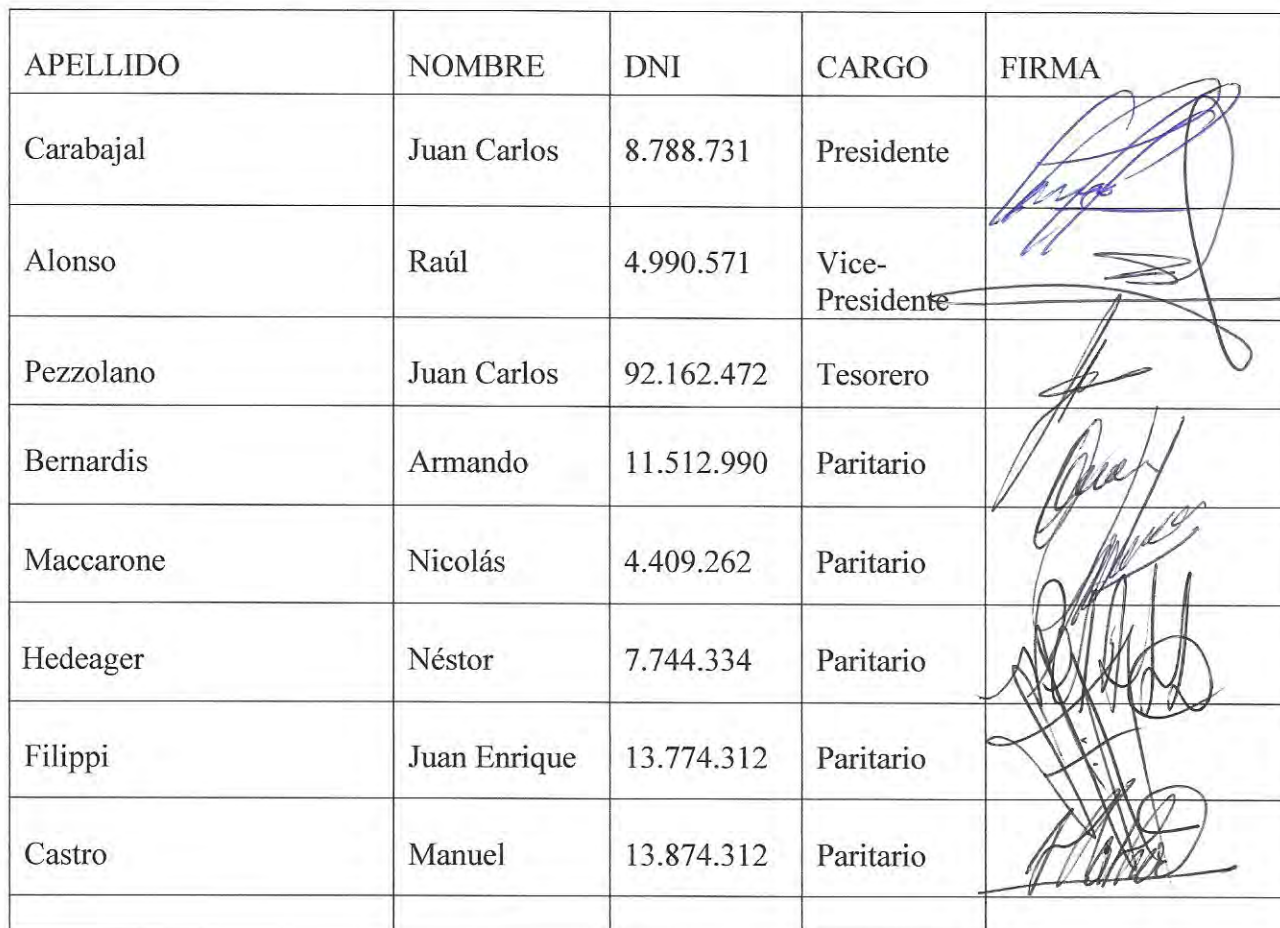 APELLIDO NOMBRE DNI CARGO FIRMA
Carabajal Juan Carlos 8.788.731 Presidente
Alonso Raúl 4.990.571 Vice-
Presidente
Pezzolano Juan Carlos 92.162.472 Tesorero
Bernardis Armando 11.512.990 Paritario
Maccarone Nicolás 4.409.262 Paritario
Hedeager Néstor 7.744.334 Paritario
Filippi Juan Enrique 13.774.312 Paritario
Castro Manuel 13.874.312 Paritario